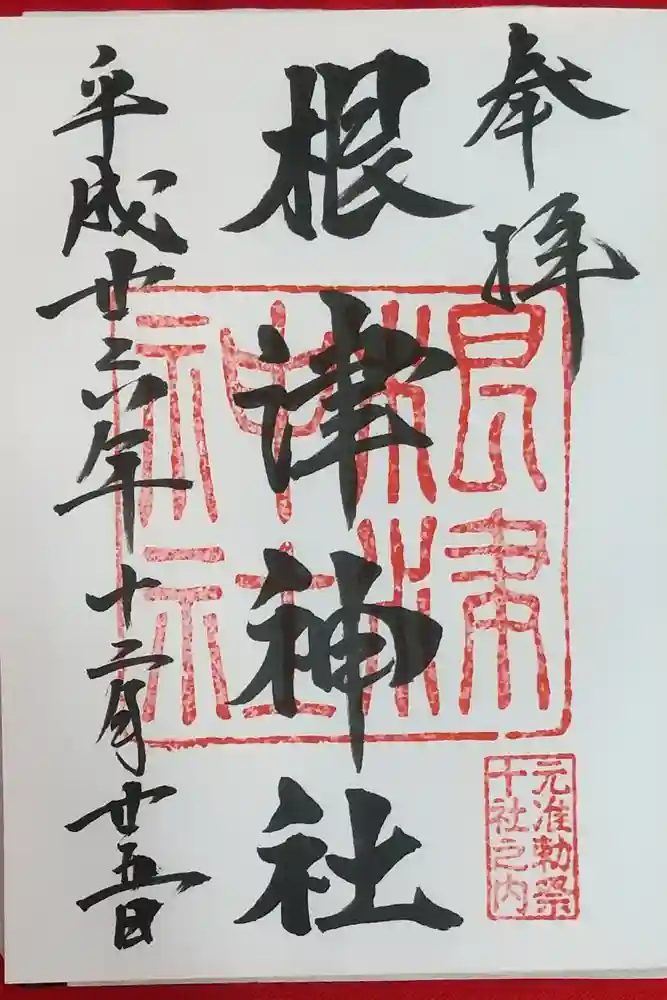 奉拝
根津神社
根津
神社
元准勅祭
十社之内
平成廿六年十二月廿五日